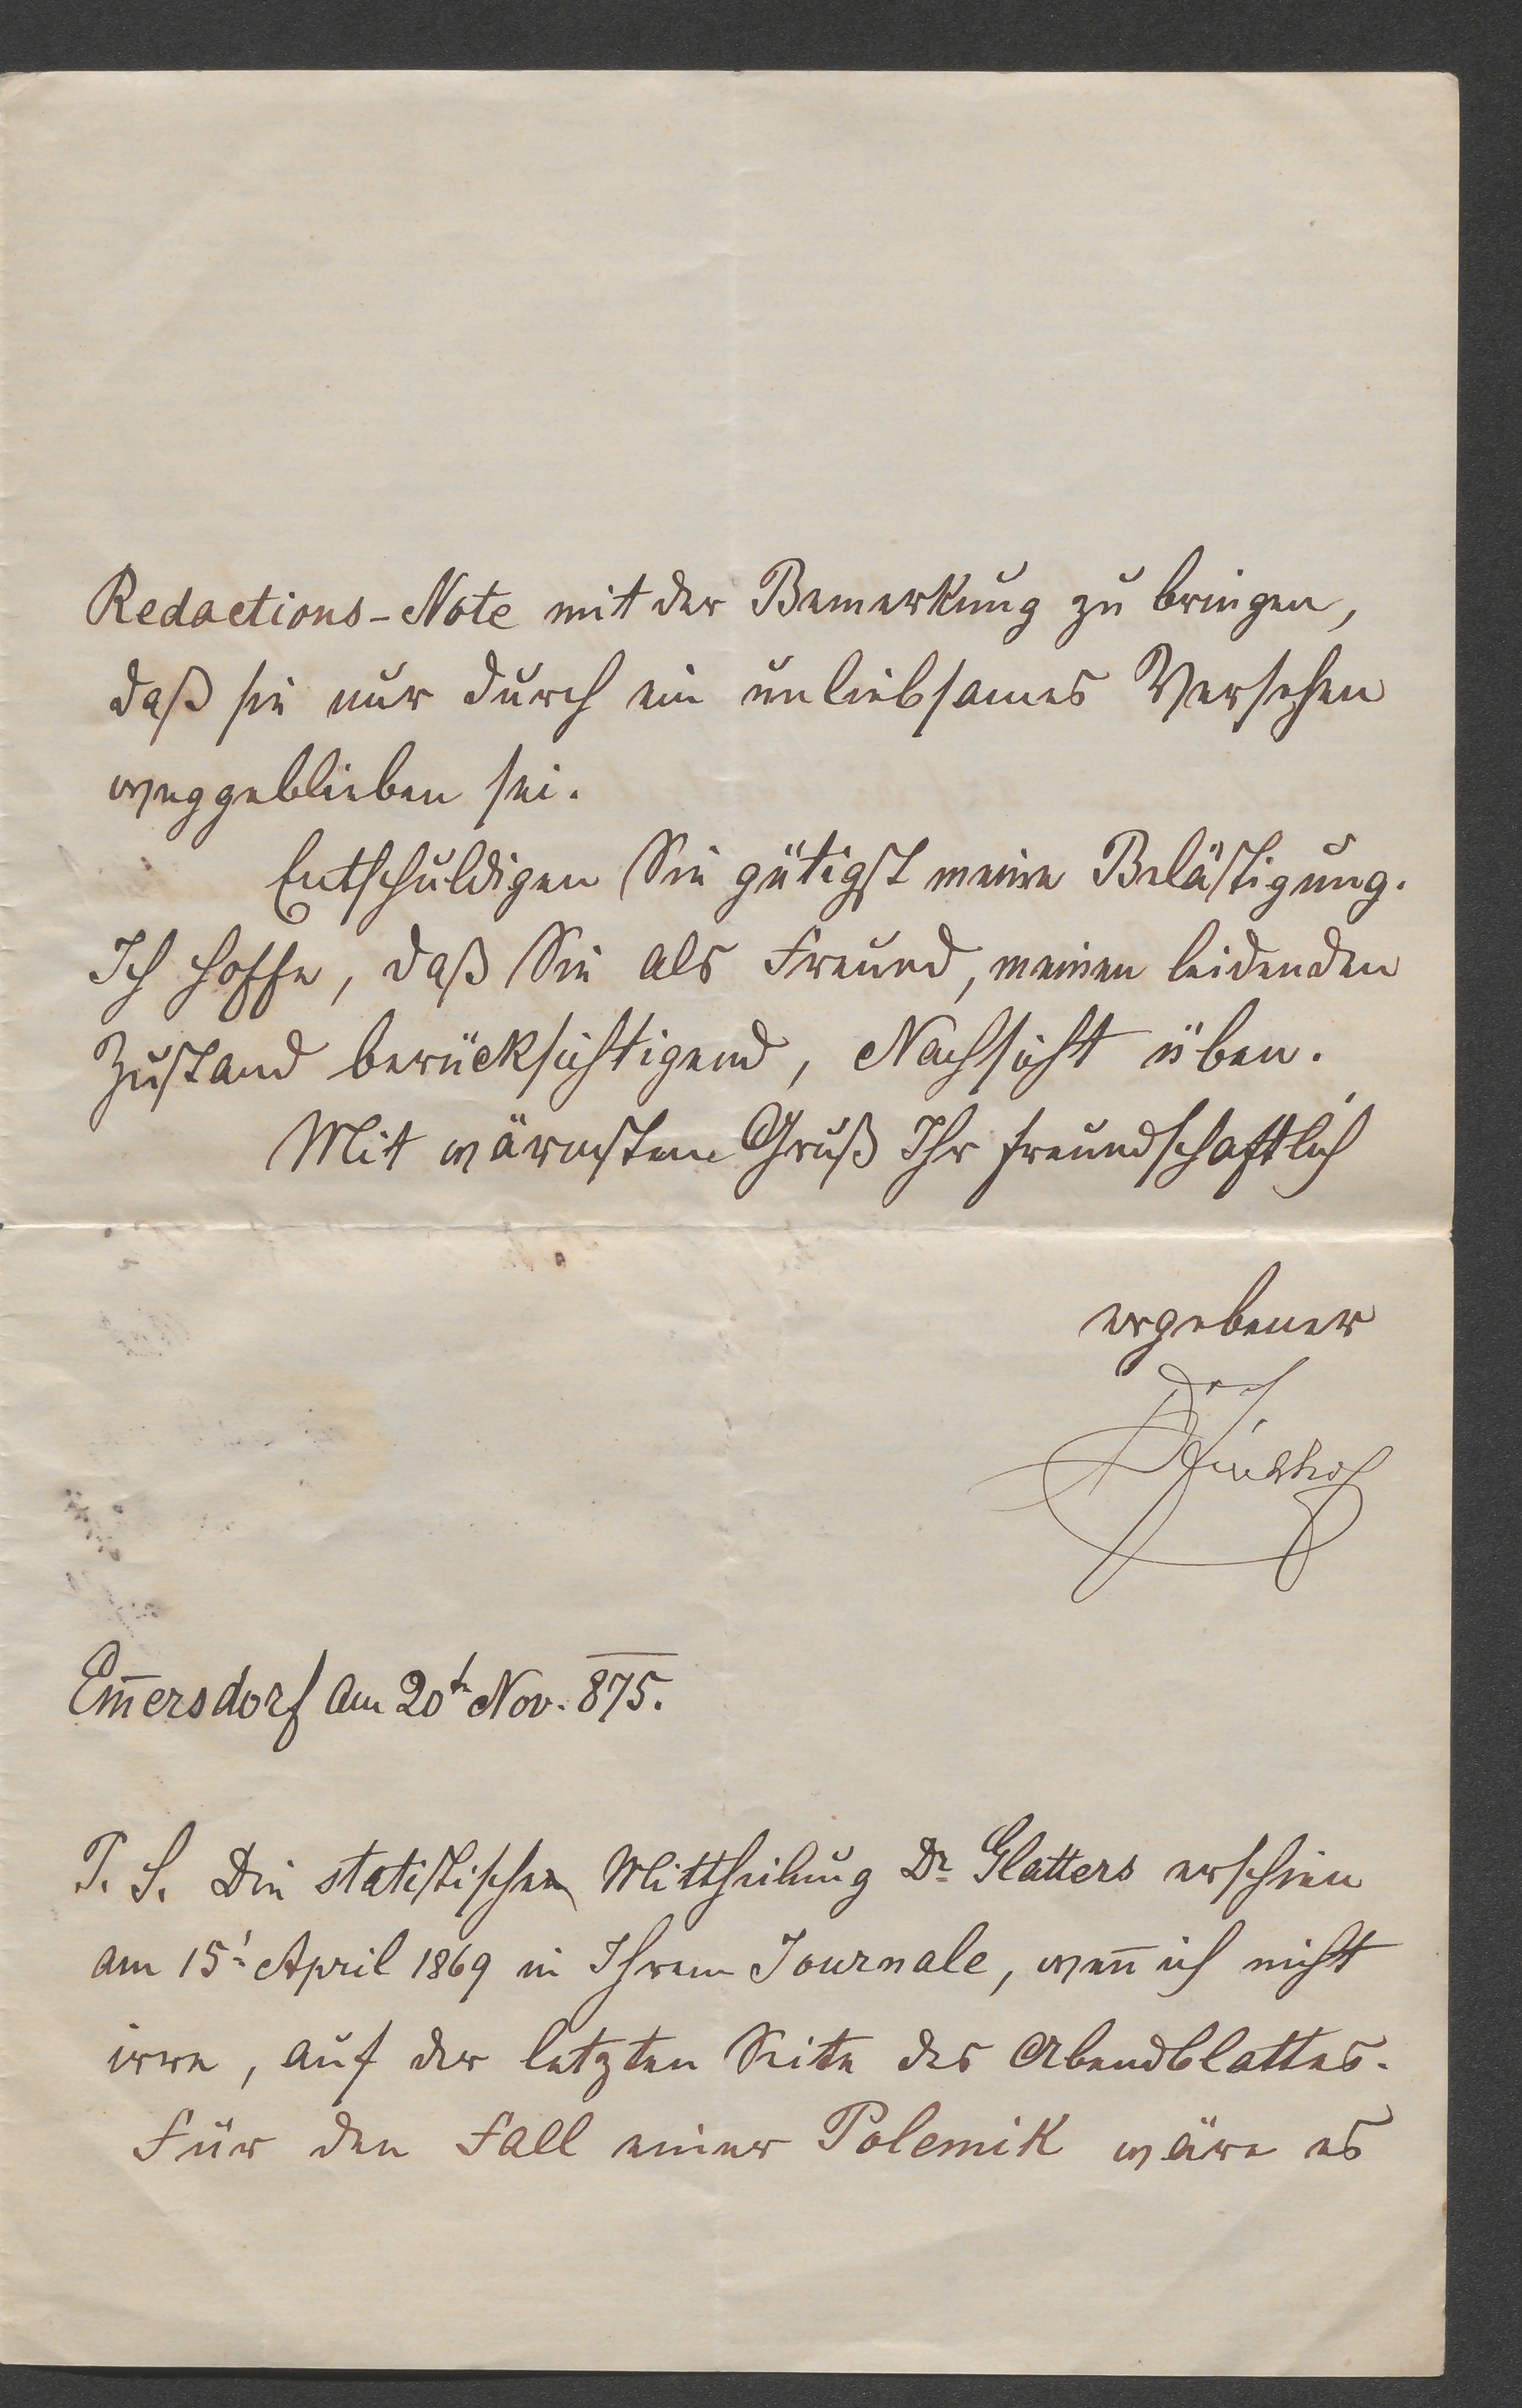 Redactions-Note mit der Bemerkung zu bringen,
daß sie nur durch ein unliebsames Versehen
weggeblieben sei.
Entschuldigen Sie gütigst meine Belästigung.
Ich hoffe, daß Sie als Freund, meinen leidenden
Zustand berücksichtigend, Nachsicht üben.
Mit wärmstem Gruß Ihr freundschaftlich
ergebener
Em̄ersdorf am 20t Nov. 875.
P. S. Die statistische Mittheilung Dr Glatters erschien
am 15t April 1869 in Ihrem Journale, wen̄ ich nicht
irre, auf der letzten Seite des Abendblattes.
Für den Fall einer Polemik wäre es